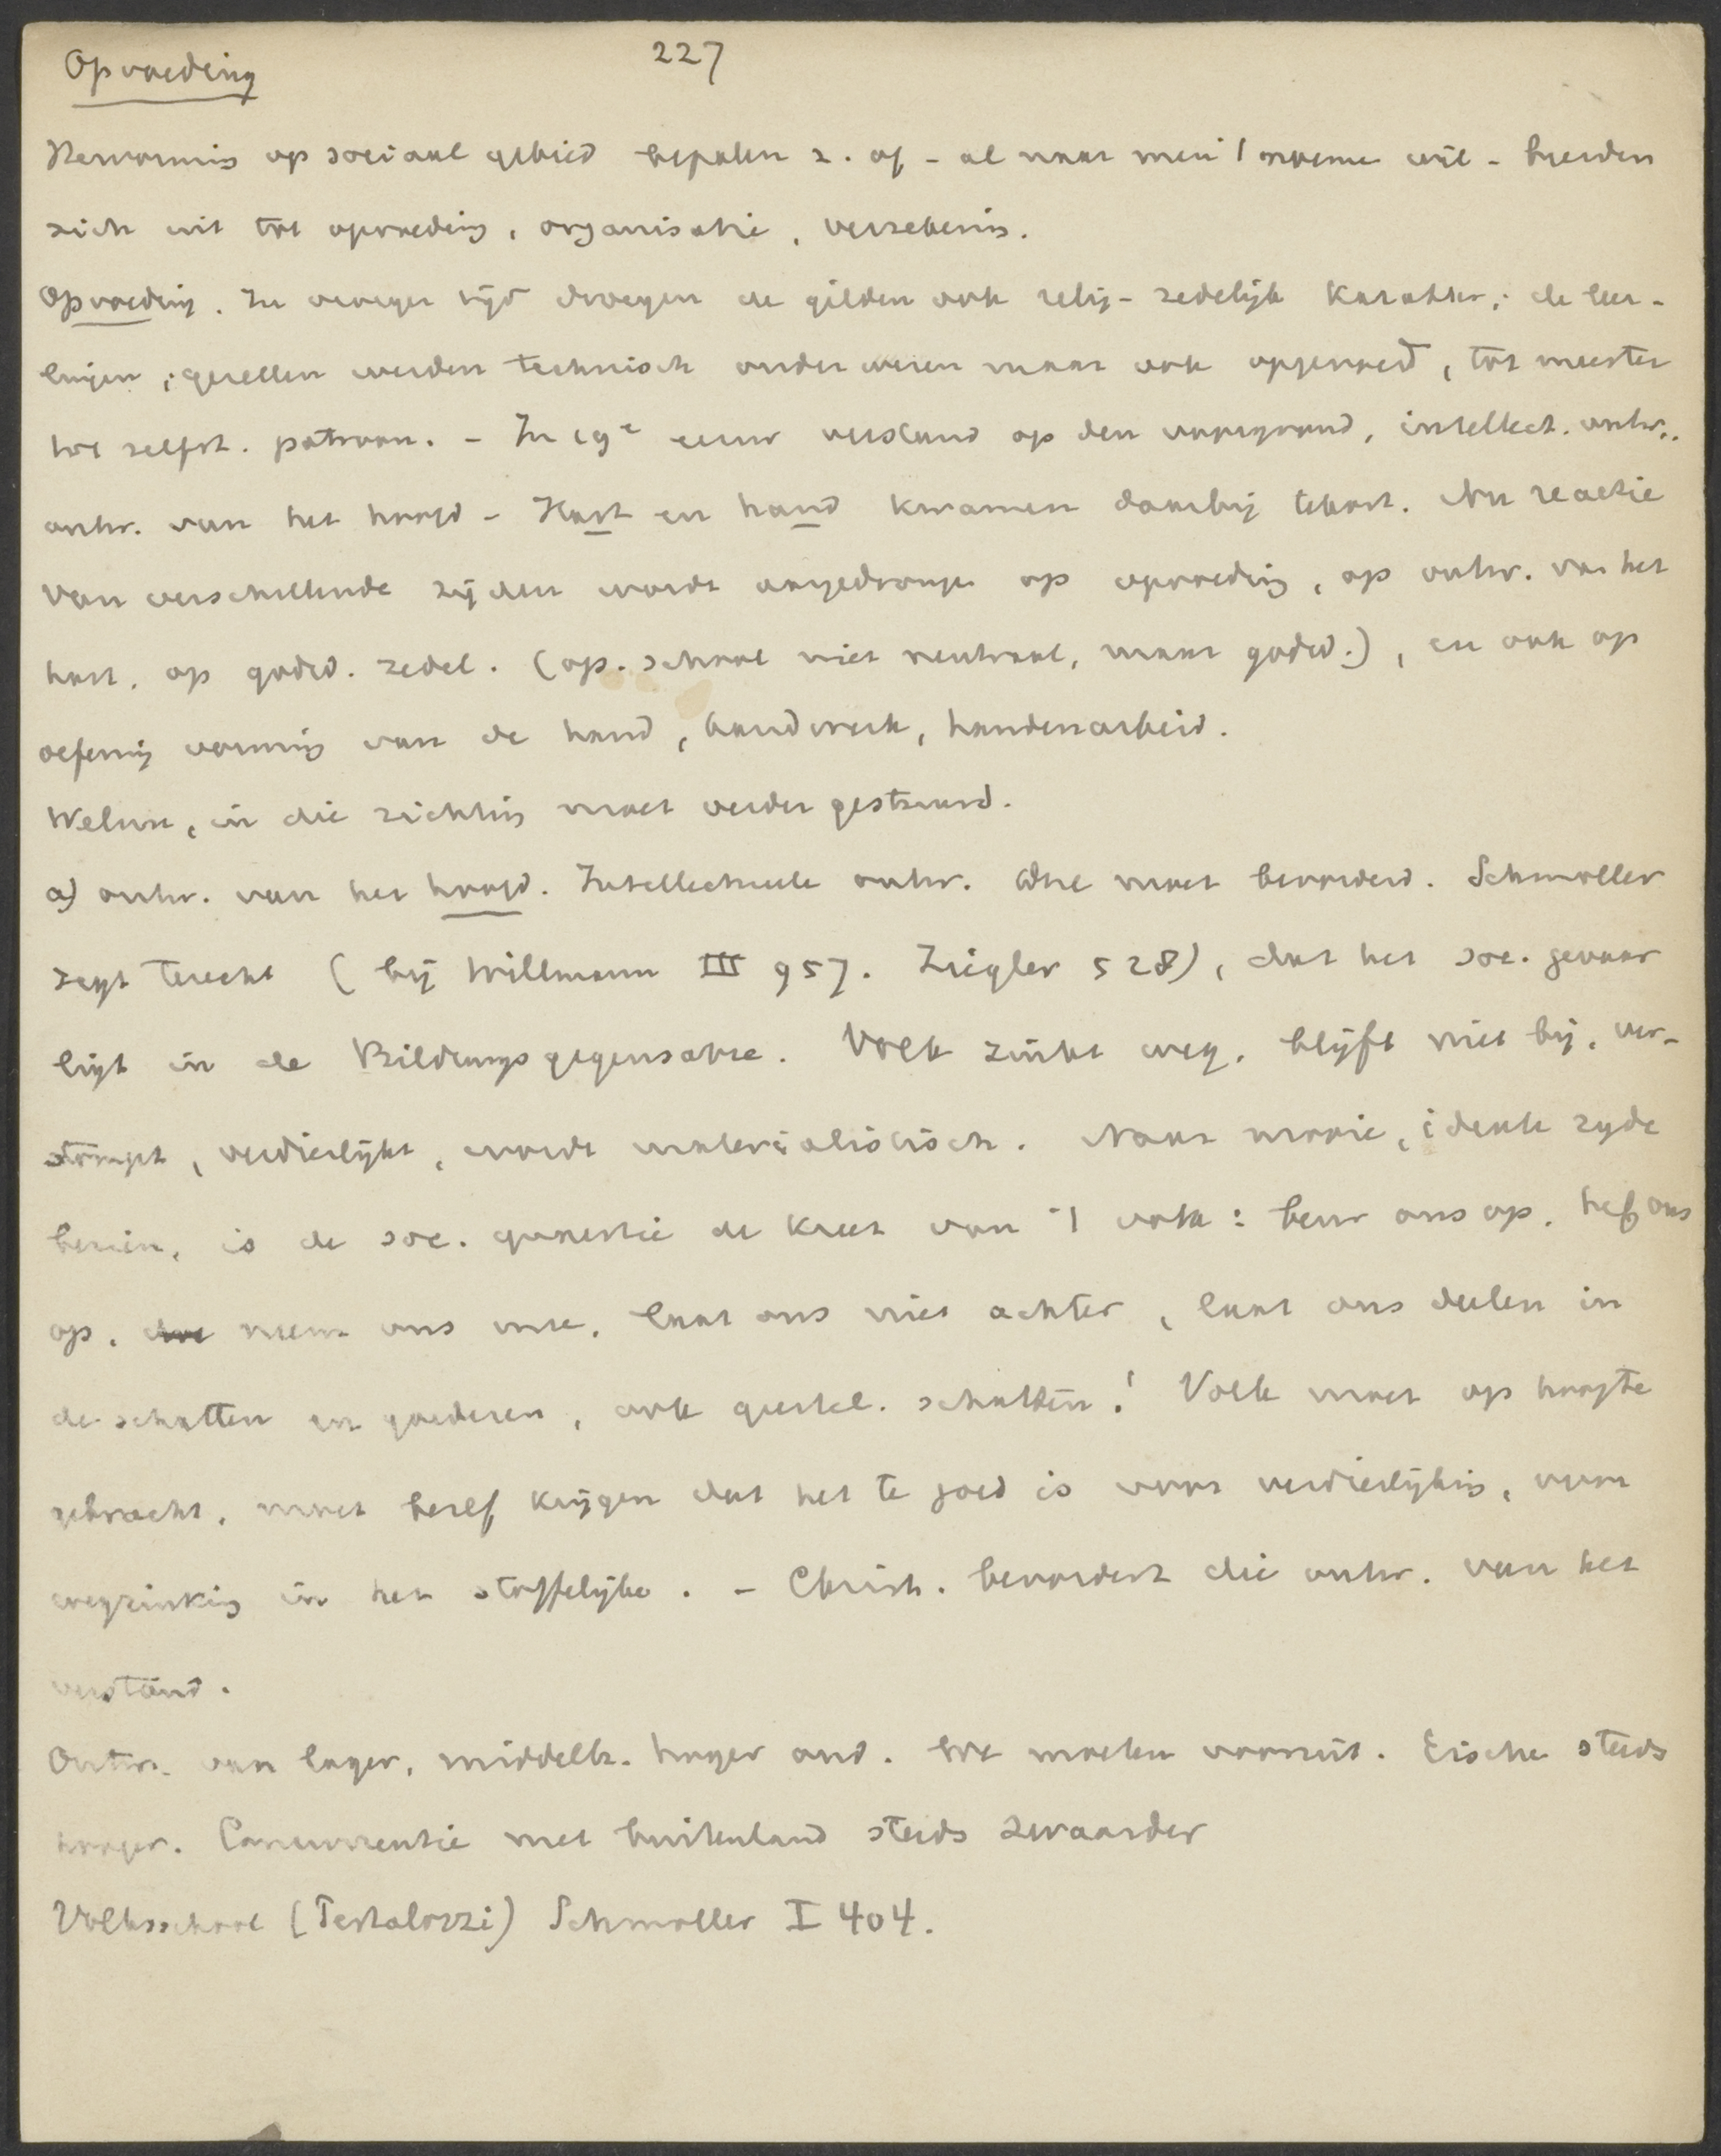 Opvoeding
227
Hervorming op sociaal gebied bepalen z. of - al naar men 't noeme wil - breiden
zich uit tot opvoeding, organisatie, verzekering.
Opvoeding. In vroeger tijd droegen de gilden ook relig-zedelijk karakter; de leer-
lingen, gezellen werden technisch onderwezen maar ook opgevoed, tot meester
tot zelfst. patroon. - In 19e eeuw verstand op den voorgrond, intellect. ontw.,
ontw. van het hoofd - Hart en hand kwamen daarbij tekort. Nu reactie
van verschillende zijden wordt aangedrongen op opvoeding, op ontw. van het
hart, op godsd. zedel. (op. school niet neutraal, maar godsd.), en ook op
oefening vorming van de hand, handwerk, handenarbeid.
Welnu, in die richting moet verder gestuurd.
a) ontw. van het hoofd. Intellectueele ontw. moet bevorderd. Schmoller
zegt terecht (bij Willmann III 957. Ziegler 528), dat het soc. gevaar
ligt in de Bildungsgegensatze. Volk zinkt weg, blijft niet bij, ver-
stompt, verdierlijkt, wordt materialistisch. Naar mooie, ideale zyde
bezien, is de soc. quaestie de kreet van 't volk: beur ons op, hef ons
op, neem ons mee, laat ons niet achter, laat ons deelen in
de schatten en goederen, ook geestel. schatten! Volk moet op hoogte
gebracht, moet besef krijgen dat het te goed is voor verdierlijking, voor
wegzinking in het stoffelijke. - Christ. bevordert die ontw. van het
verstand.
Ontw. van lager, middelb. hooger ond. We moeten vooruit. Eischen steeds
hooger. Concurrentie met buitenland steeds zwaarder
Volksschool (Pestalozzi) Schmoller I 404.